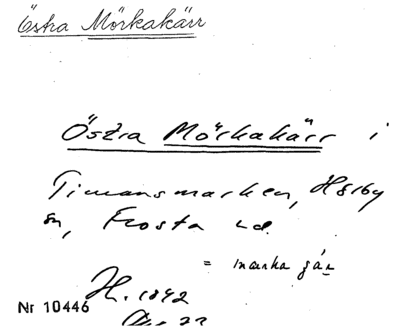 Östra Mörkakärr
Östra Mörkakärr i
Timansmarken, Hörby
sn, Frosta hd.
= marka går
H. 1842
Nr 10446